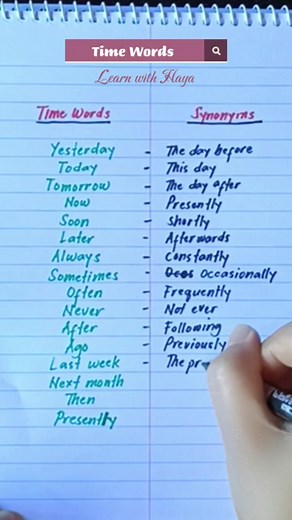 Time Words
Learn with Haya
Time Words Synonyms
Yesterday - The day before
Today - This day
Tomorrow - The day after
Now - Presently
Soon - Shortly
Later - Afterwards
Always - Constantly
Sometimes - Occasionally
Often - Frequently
Never - Not ever
After - Following
Ago - Previously
Last week - The pr
Next month
Then
Presently